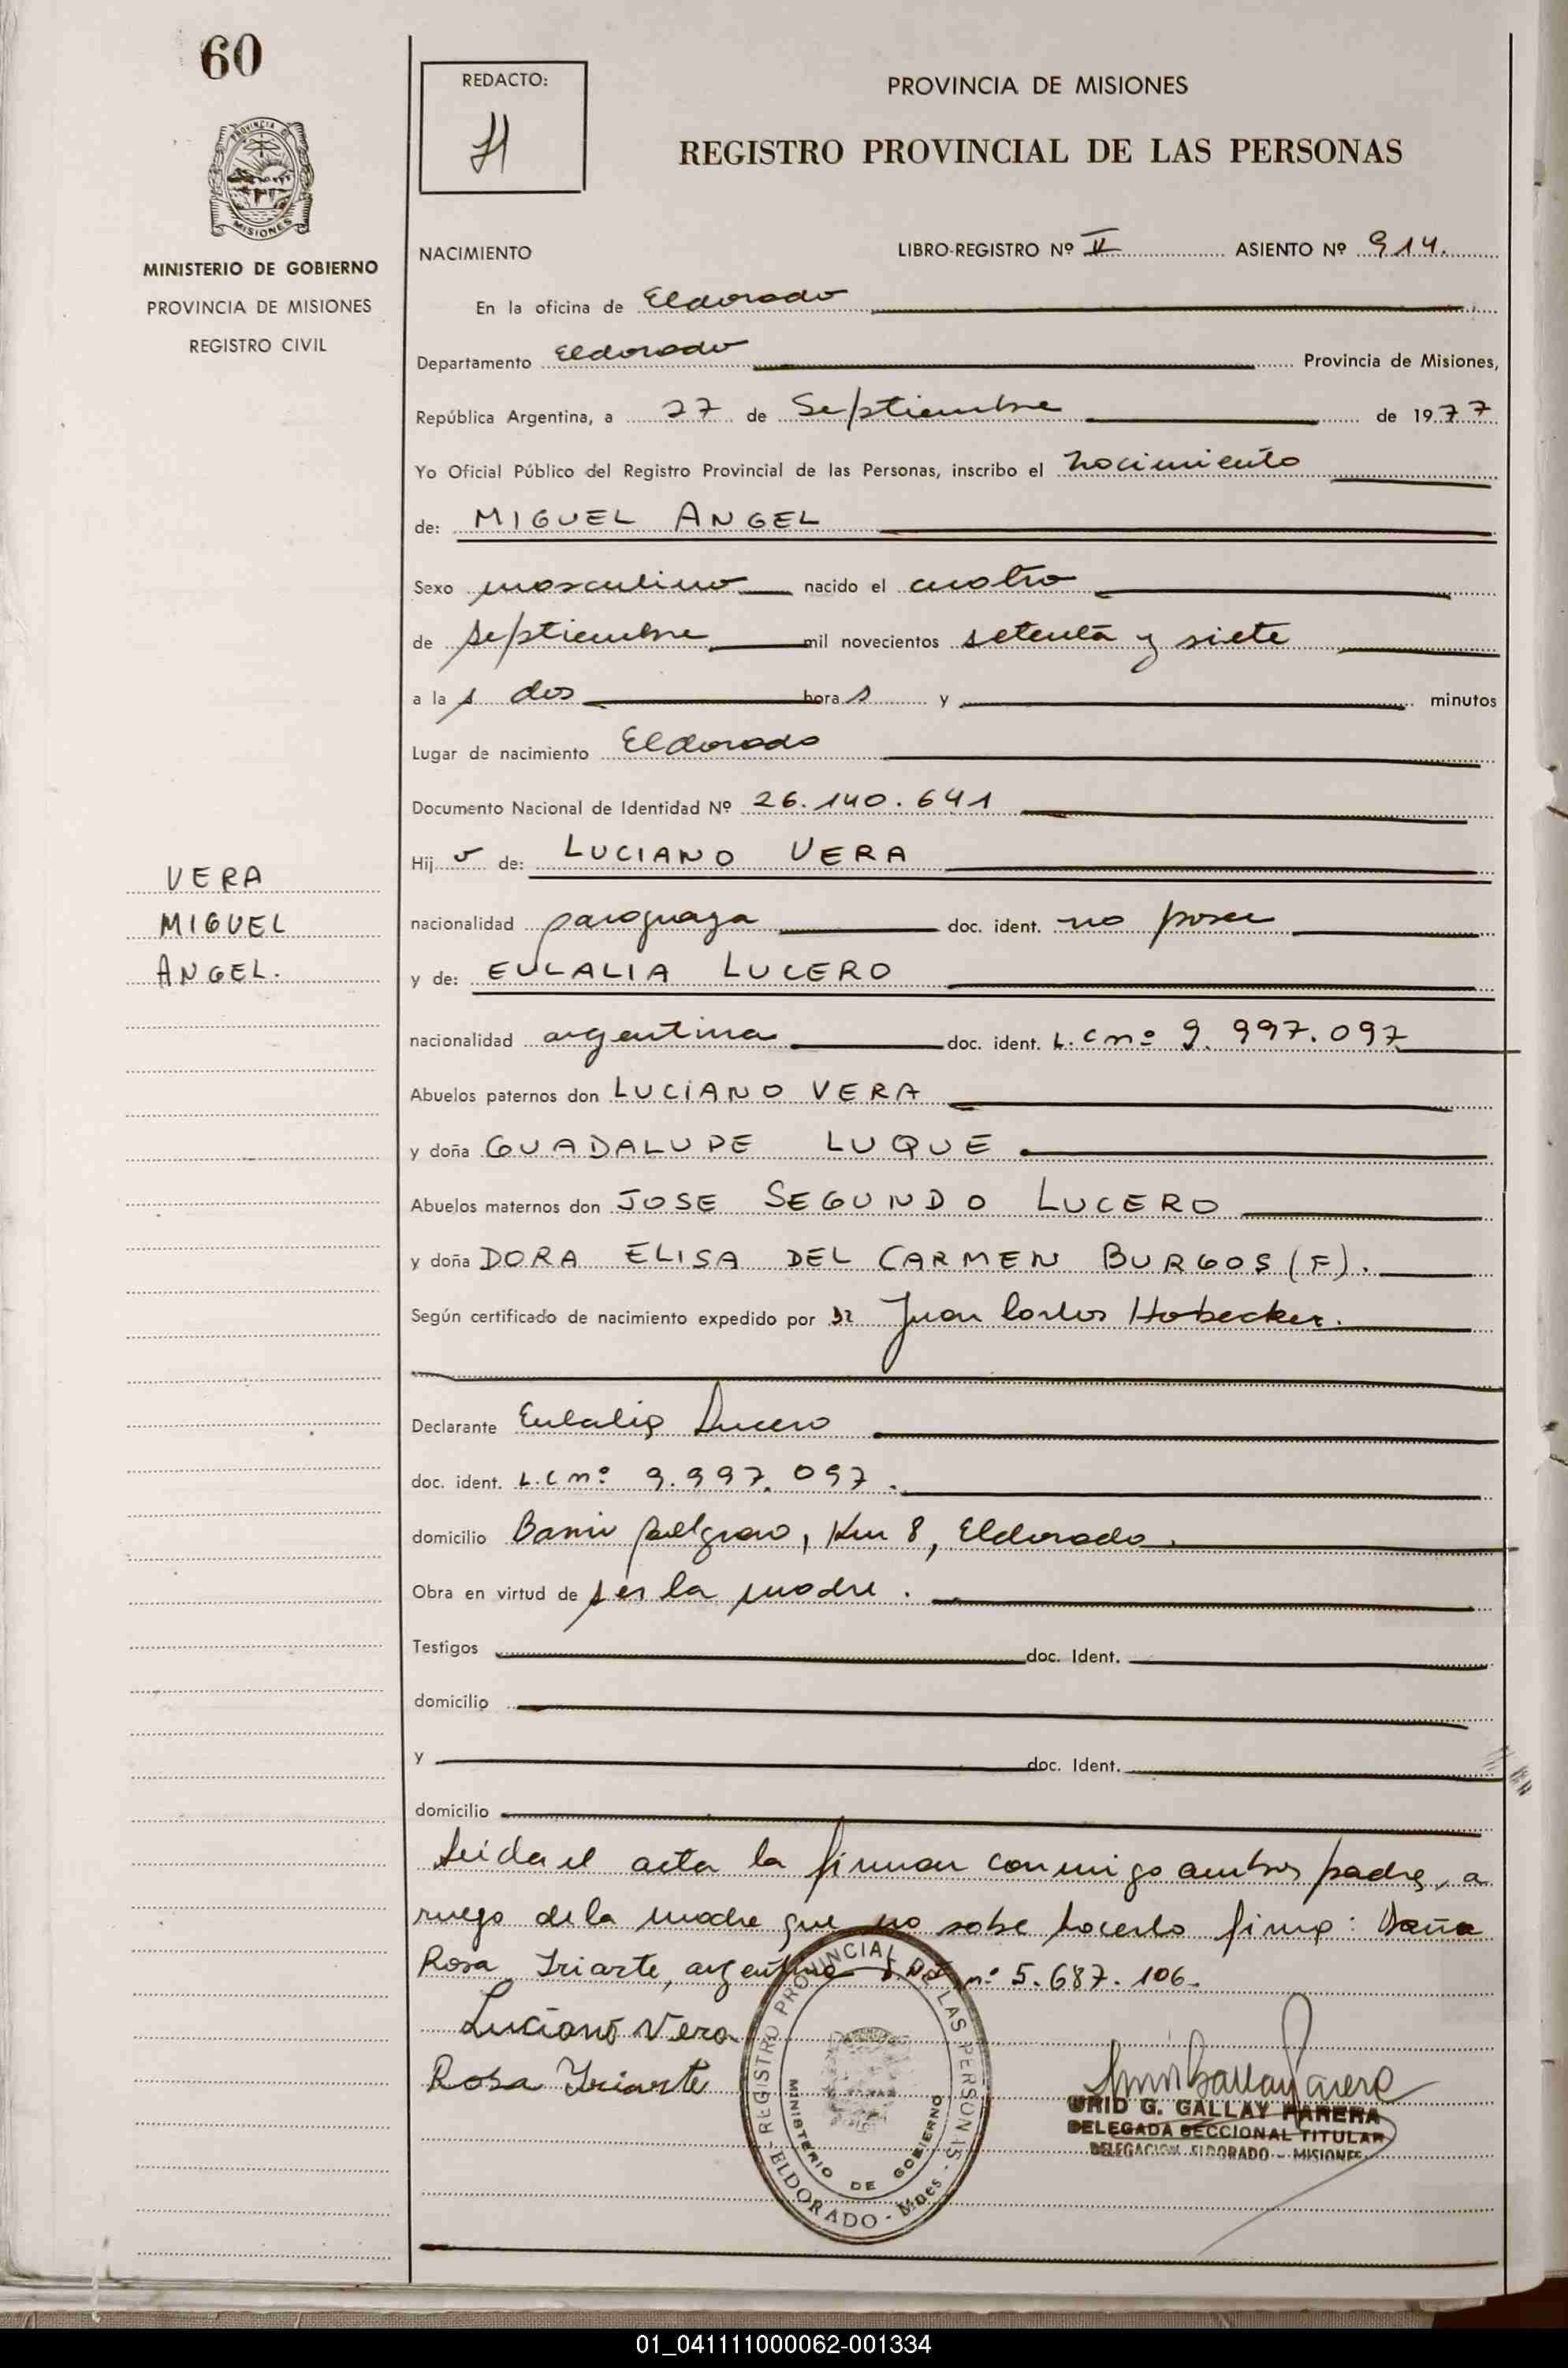 60
REDACTO:
PROVINCIA DE MISIONES
REGISTRO PROVINCIAL DE LAS PERSONAS
PROVINCIA DE
MISIONES
MINISTERIO DE GOBIERNO
PROVINCIA DE MISIONES
REGISTRO CIVIL
NACIMIENTO LIBRO-REGISTRO Nº II ASIENTO Nº 914.
En la oficina de Eldorado
Departamento Eldorado Provincia de Misiones,
República Argentina, a 27 de Septiembre de 1977
Yo Oficial Público del Registro Provincial de las Personas, inscribo el nacimiento
de: MIGUEL ANGEL
Sexo masculino nacido el cuatro
de septiembre mil novecientos setenta y siete
a las dos horas y minutos
Lugar de nacimiento Eldorado
Documento Nacional de Identidad Nº 26.140.641
Hijo de: LUCIANO VERA
VERA
MIGUEL
ANGEL.
nacionalidad paraguaya doc. ident. no posee
y de: EULALIA LUCERO
nacionalidad argentina doc. ident. L.C nº 9.997.097
Abuelos paternos don LUCIANO VERA
y doña GUADALUPE LUQUE
Abuelos maternos don JOSE SEGUNDO LUCERO
y doña DORA ELISA DEL CARMEN BURGOS (F).
Según certificado de nacimiento expedido por Dr Juan Carlos Hobecker.
Declarante Eulalia Lucero
doc. ident. L.C nº 9.997.097.
domicilio Barrio Belgrano, Km 8, Eldorado.
Obra en virtud de ser la madre.
Testigos doc. Ident.
domicilio
y doc. Ident.
domicilio
Leida el acta la firman conmigo ambos padres, a
ruego de la madre que no sabe hacerlo firma: Doña
Rosa Iriarte, argentina nº 5.687.106.
Luciano Vera
Rosa Yriarte
REGISTRO PROVINCIAL DE LAS PERSONAS
MINISTERIO DE GOBIERNO
ELDORADO - Mnes -
URID G. GALLAY PARERA
DELEGADA SECCIONAL TITULAR
DELEGACION ELDORADO - MISIONES
01_041111000062-001334